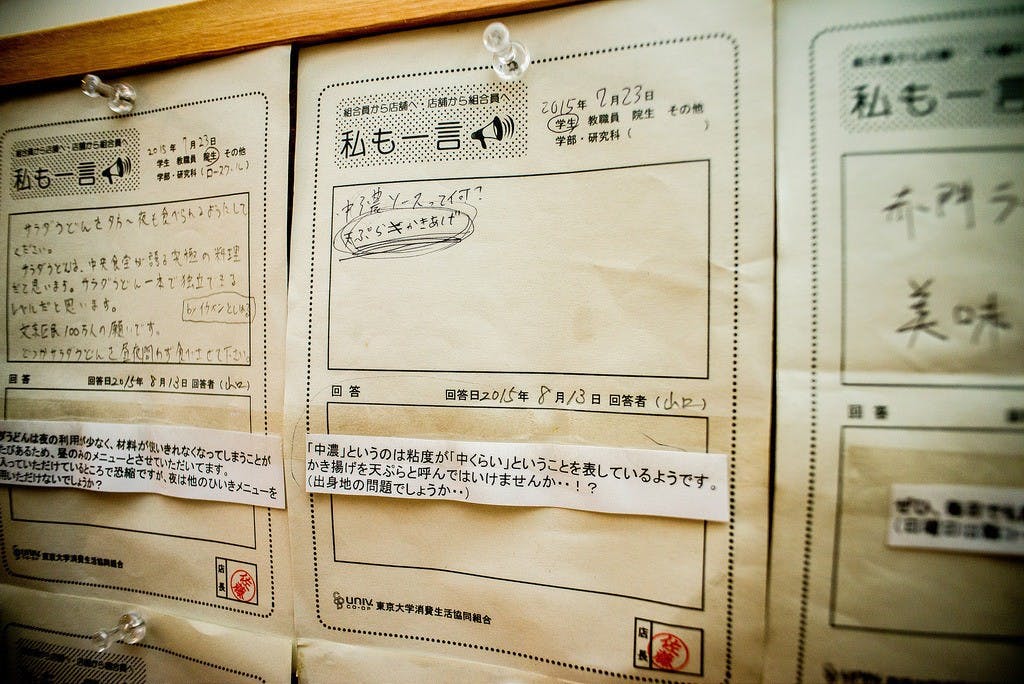 組合員から店舗へ・店舗から組合員へ
私も一言
2015年 7月23日
学生 教職員 院生 その他
学部・研究科(ロースクール)
サラダうどんを夕方〜夜も食べられるようにして
ください。
サラダうどんは、中央食堂が誇る究極の料理
だと思います。サラダうどん一本で独立できる
レベルだと思います。
byイケメンとしゆき
文京区民100万人の願いです。
どうかサラダうどんを昼夜問わず食べさせて下さい。
回答 回答日2015年 8月13日 回答者(山口)
ダうどんは夜の利用が少なく、材料が使いきれなくなってしまうことが
たびあるため、昼のみのメニューとさせていただいてます。
入っていただけているところで恐縮ですが、夜は他のひいきメニューを
用いただけないでしょうか?
UNIV. CO-OP 東京大学消費生活協同組合
店長
佐藤
組合員から店舗へ・店舗から組合員へ
私も一言
2015年 7月23日
学生 教職員 院生 その他
学部・研究科( )
中濃ソースって何?
天ぷら≠かきあげ
回答 回答日2015年 8月13日 回答者(山口)
「中濃」というのは粘度が「中くらい」ということを表しているようです。
かき揚げを天ぷらと呼んではいけませんか・・!?
(出身地の問題でしょうか・・)
UNIV. CO-OP 東京大学消費生活協同組合
店長
佐藤
私も一言
赤門ラ
美味
回答
ぜひ、毎日でも
(日曜日は